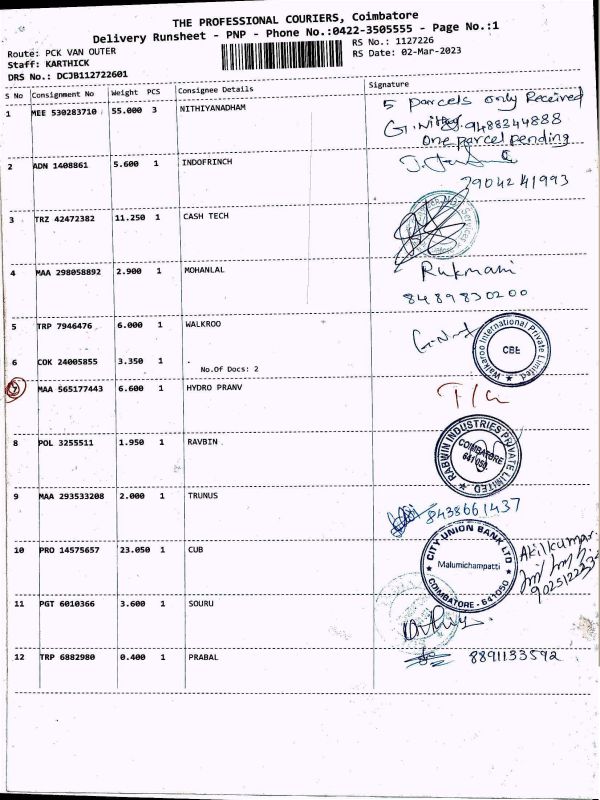 THE PROFESSIONAL COURIERS, Coimbatore
Delivery Runsheet - PNP - Phone No.:0422-3505555 - Page No.:1
Route: PCK VAN OUTER
RS No.: 1127226
Staff: KARTHICK
RS Date: 02-Mar-2023
DRS No.: DCJB112722601
S No Consignment No Weight PCS Consignee Details Signature
1 MEE 530283710 55.000 3 NITHIYANADHAM
5 parcels only Received
9488344888
one parcel pending
2 ADN 1408861 5.600 1 INDOFRINCH
7904241993
3 TRZ 42472382 11.250 1 CASH TECH
4 MAA 298058892 2.900 1 MOHANLAL
Rukmani
8489830200
5 TRP 7946476 6.000 1 WALKROO
Walkaroo International Private Limited
CBE
6 COK 24005855 3.350 1 .
No.Of Docs: 2
MAA 565177443 6.600 1 HYDRO PRANV
8 POL 3255511 1.950 1 RAVBIN
RABWIN INDUSTRIES PRIVATE LIMITED
COIMBATORE
641050.
9 MAA 293533208 2.000 1 TRUNUS
8438661437
10 PRO 14575657 23.050 1 CUB
CITY UNION BANK LTD
Malumichampatti
COIMBATORE - 641050
Akilkumar
11 PGT 6010366 3.600 1 SOURU
12 TRP 6882980 0.400 1 PRABAL
8891133592